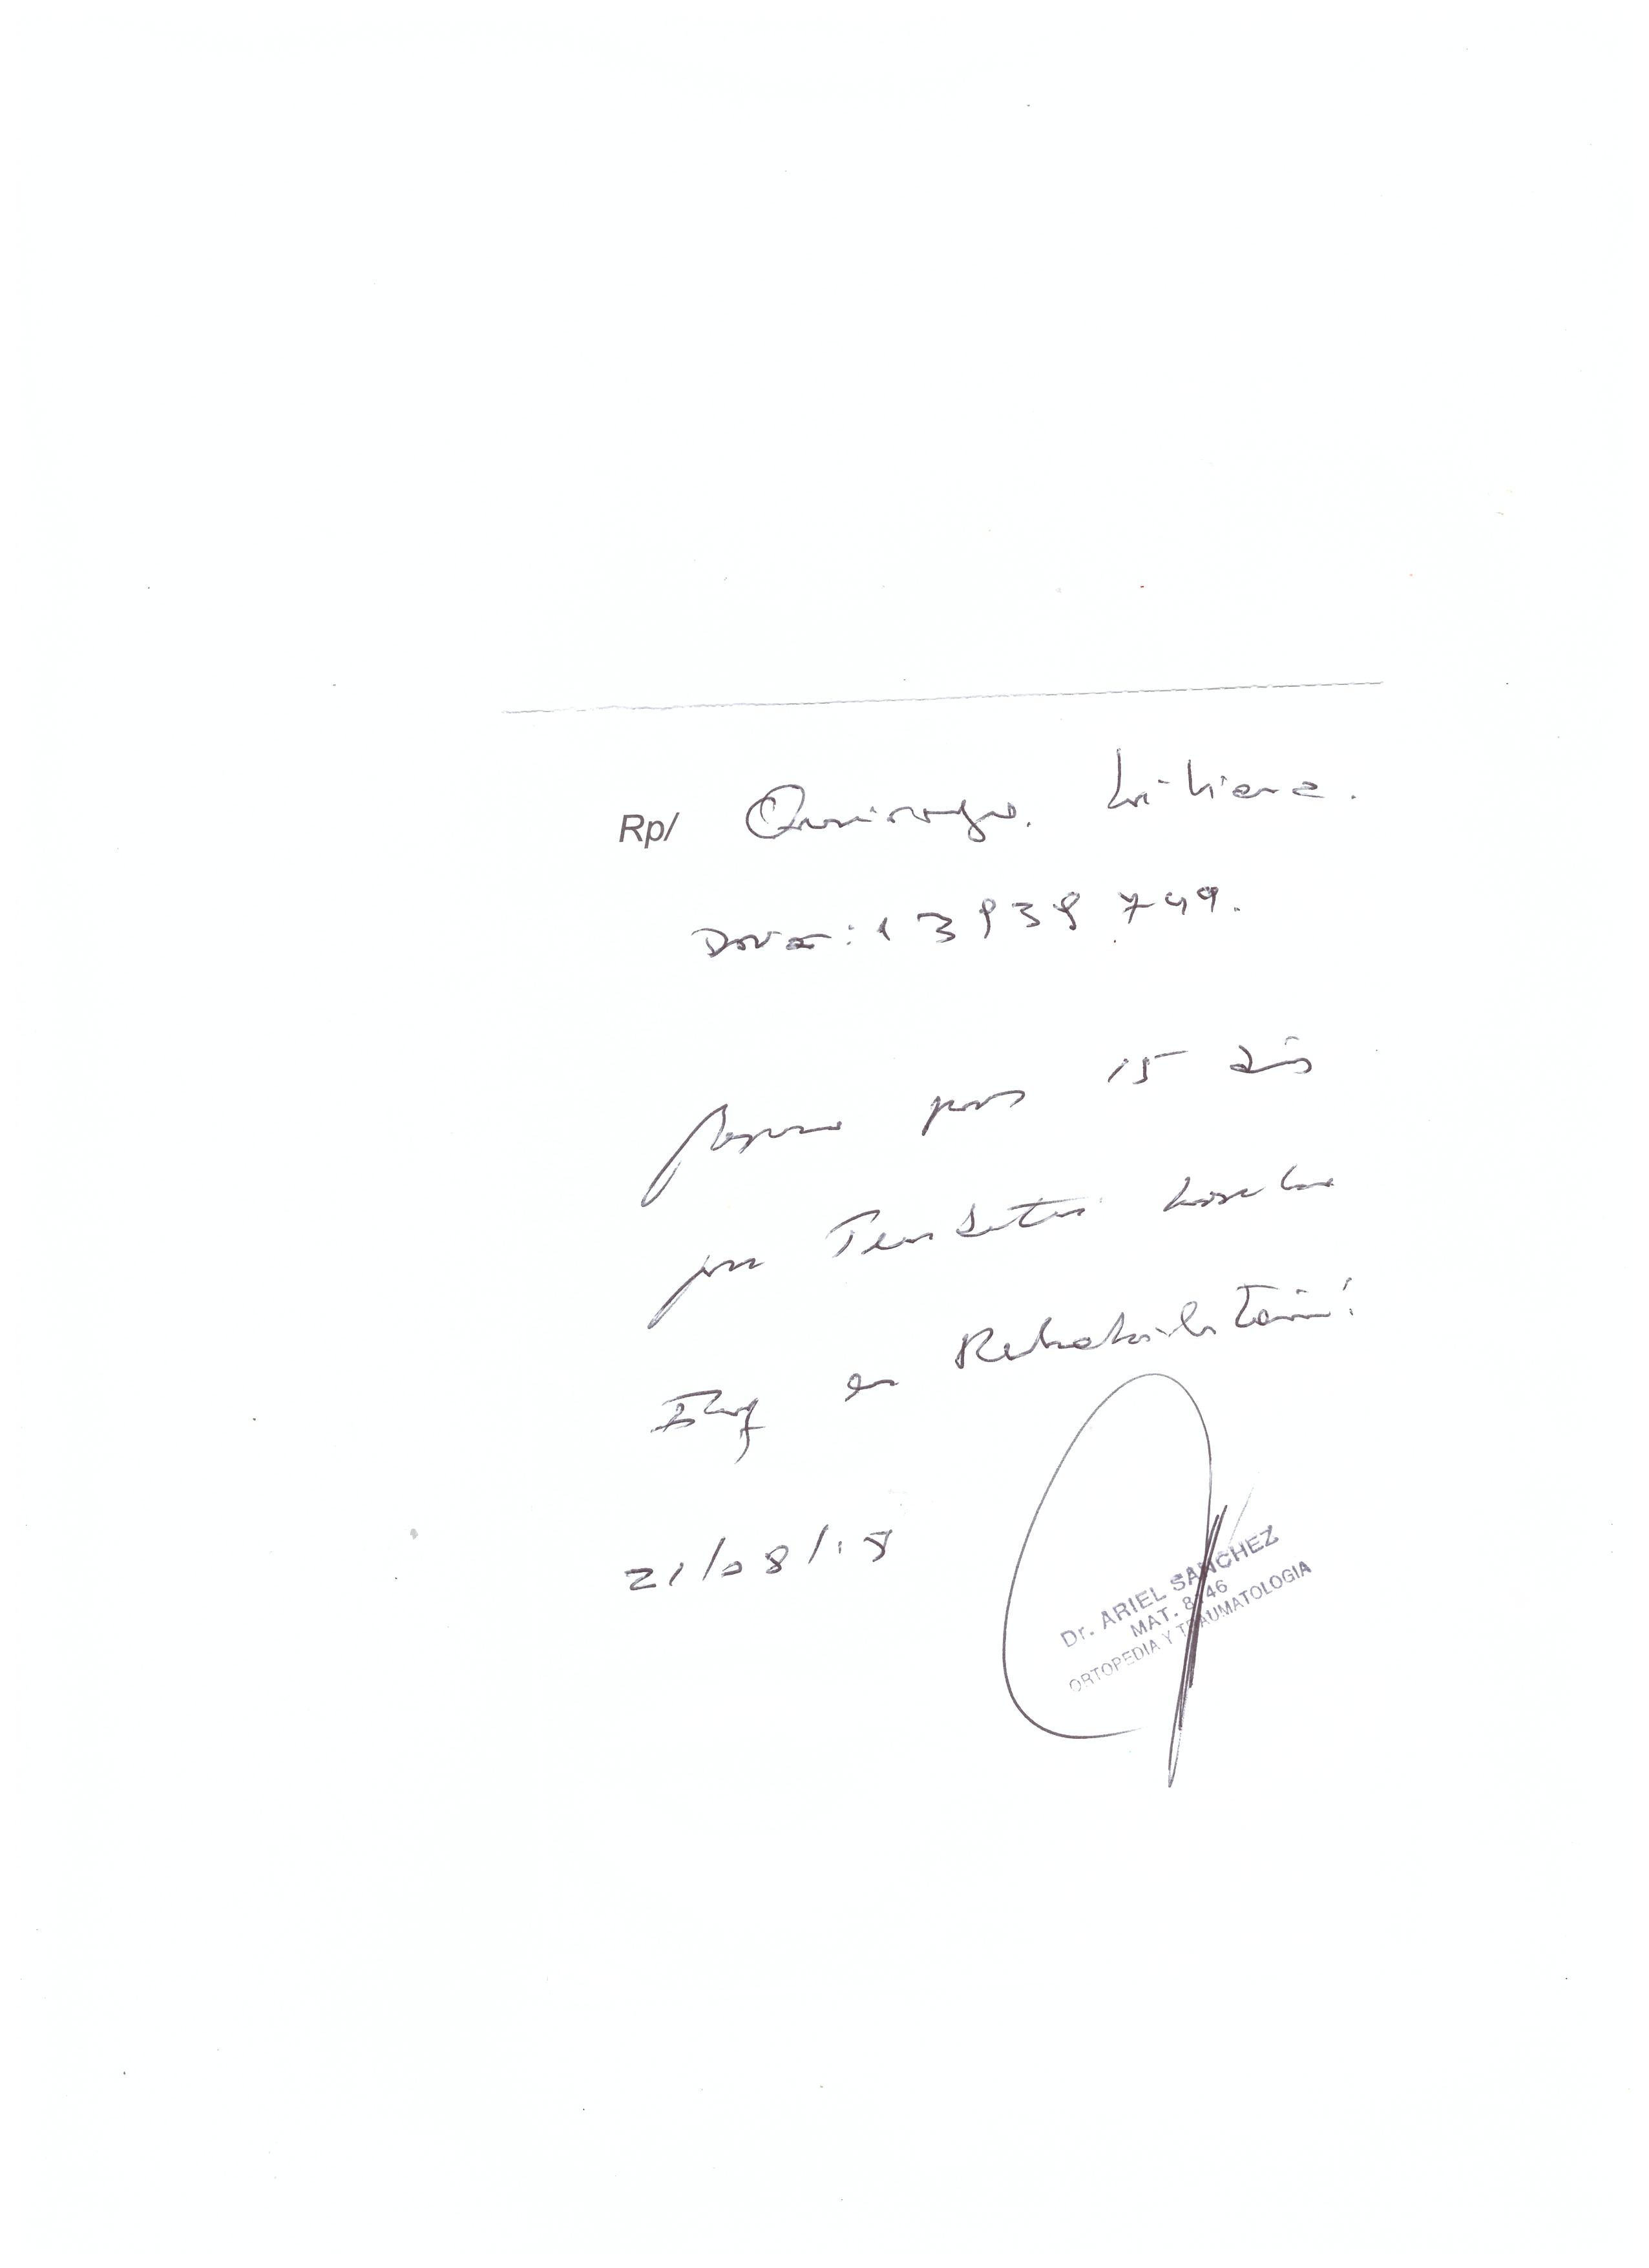 Rp/ Quiroga. Liliana.
13939749.
Reposo por 15 días
por Tendinitis
en Rehabilitación
21/08/18
Dr. ARIEL SANCHEZ
MAT.
ORTOPEDIA Y TRAUMATOLOGIA